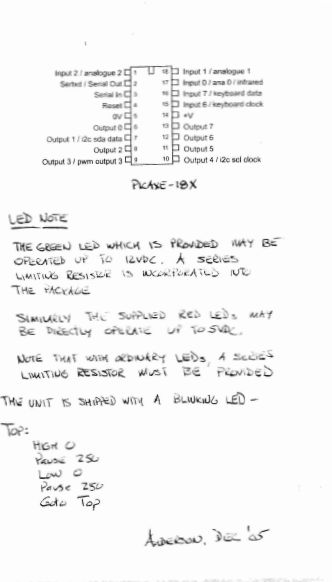 Input 2 / analogue 2 1 18 Input 1 / analogue 1
Sertxd / Serial Out 2 17 Input 0 / ana 0 / infrared
Serial In 3 16 Input 7 / keyboard data
Reset 4 15 Input 6 / keyboard clock
0V 5 14 +V
Output 0 6 13 Output 7
Output 1 / i2c sda data 7 12 Output 6
Output 2 8 11 Output 5
Output 3 / pwm output 3 9 10 Output 4 / i2c scl clock
PICAXE-18X
LED NOTE
THE GREEN LED WHICH IS PROVIDED MAY BE
OPERATED UP TO 12VDC. A SERIES
LIMITING RESISTOR IS INCORPORATED INTO
THE PACKAGE
SIMILARLY THE SUPPLIED RED LEDs MAY
BE DIRECTLY OPERATE UP TO 5VDC.
NOTE THAT WITH ORDINARY LEDs, A SERIES
LIMITING RESISTOR MUST BE PROVIDED
THE UNIT IS SHIPPED WITH A BLINKING LED -
TOP:
HIGH 0
PAUSE 250
LOW 0
PAUSE 250
GOTO TOP
ANDERSON, DEC '05